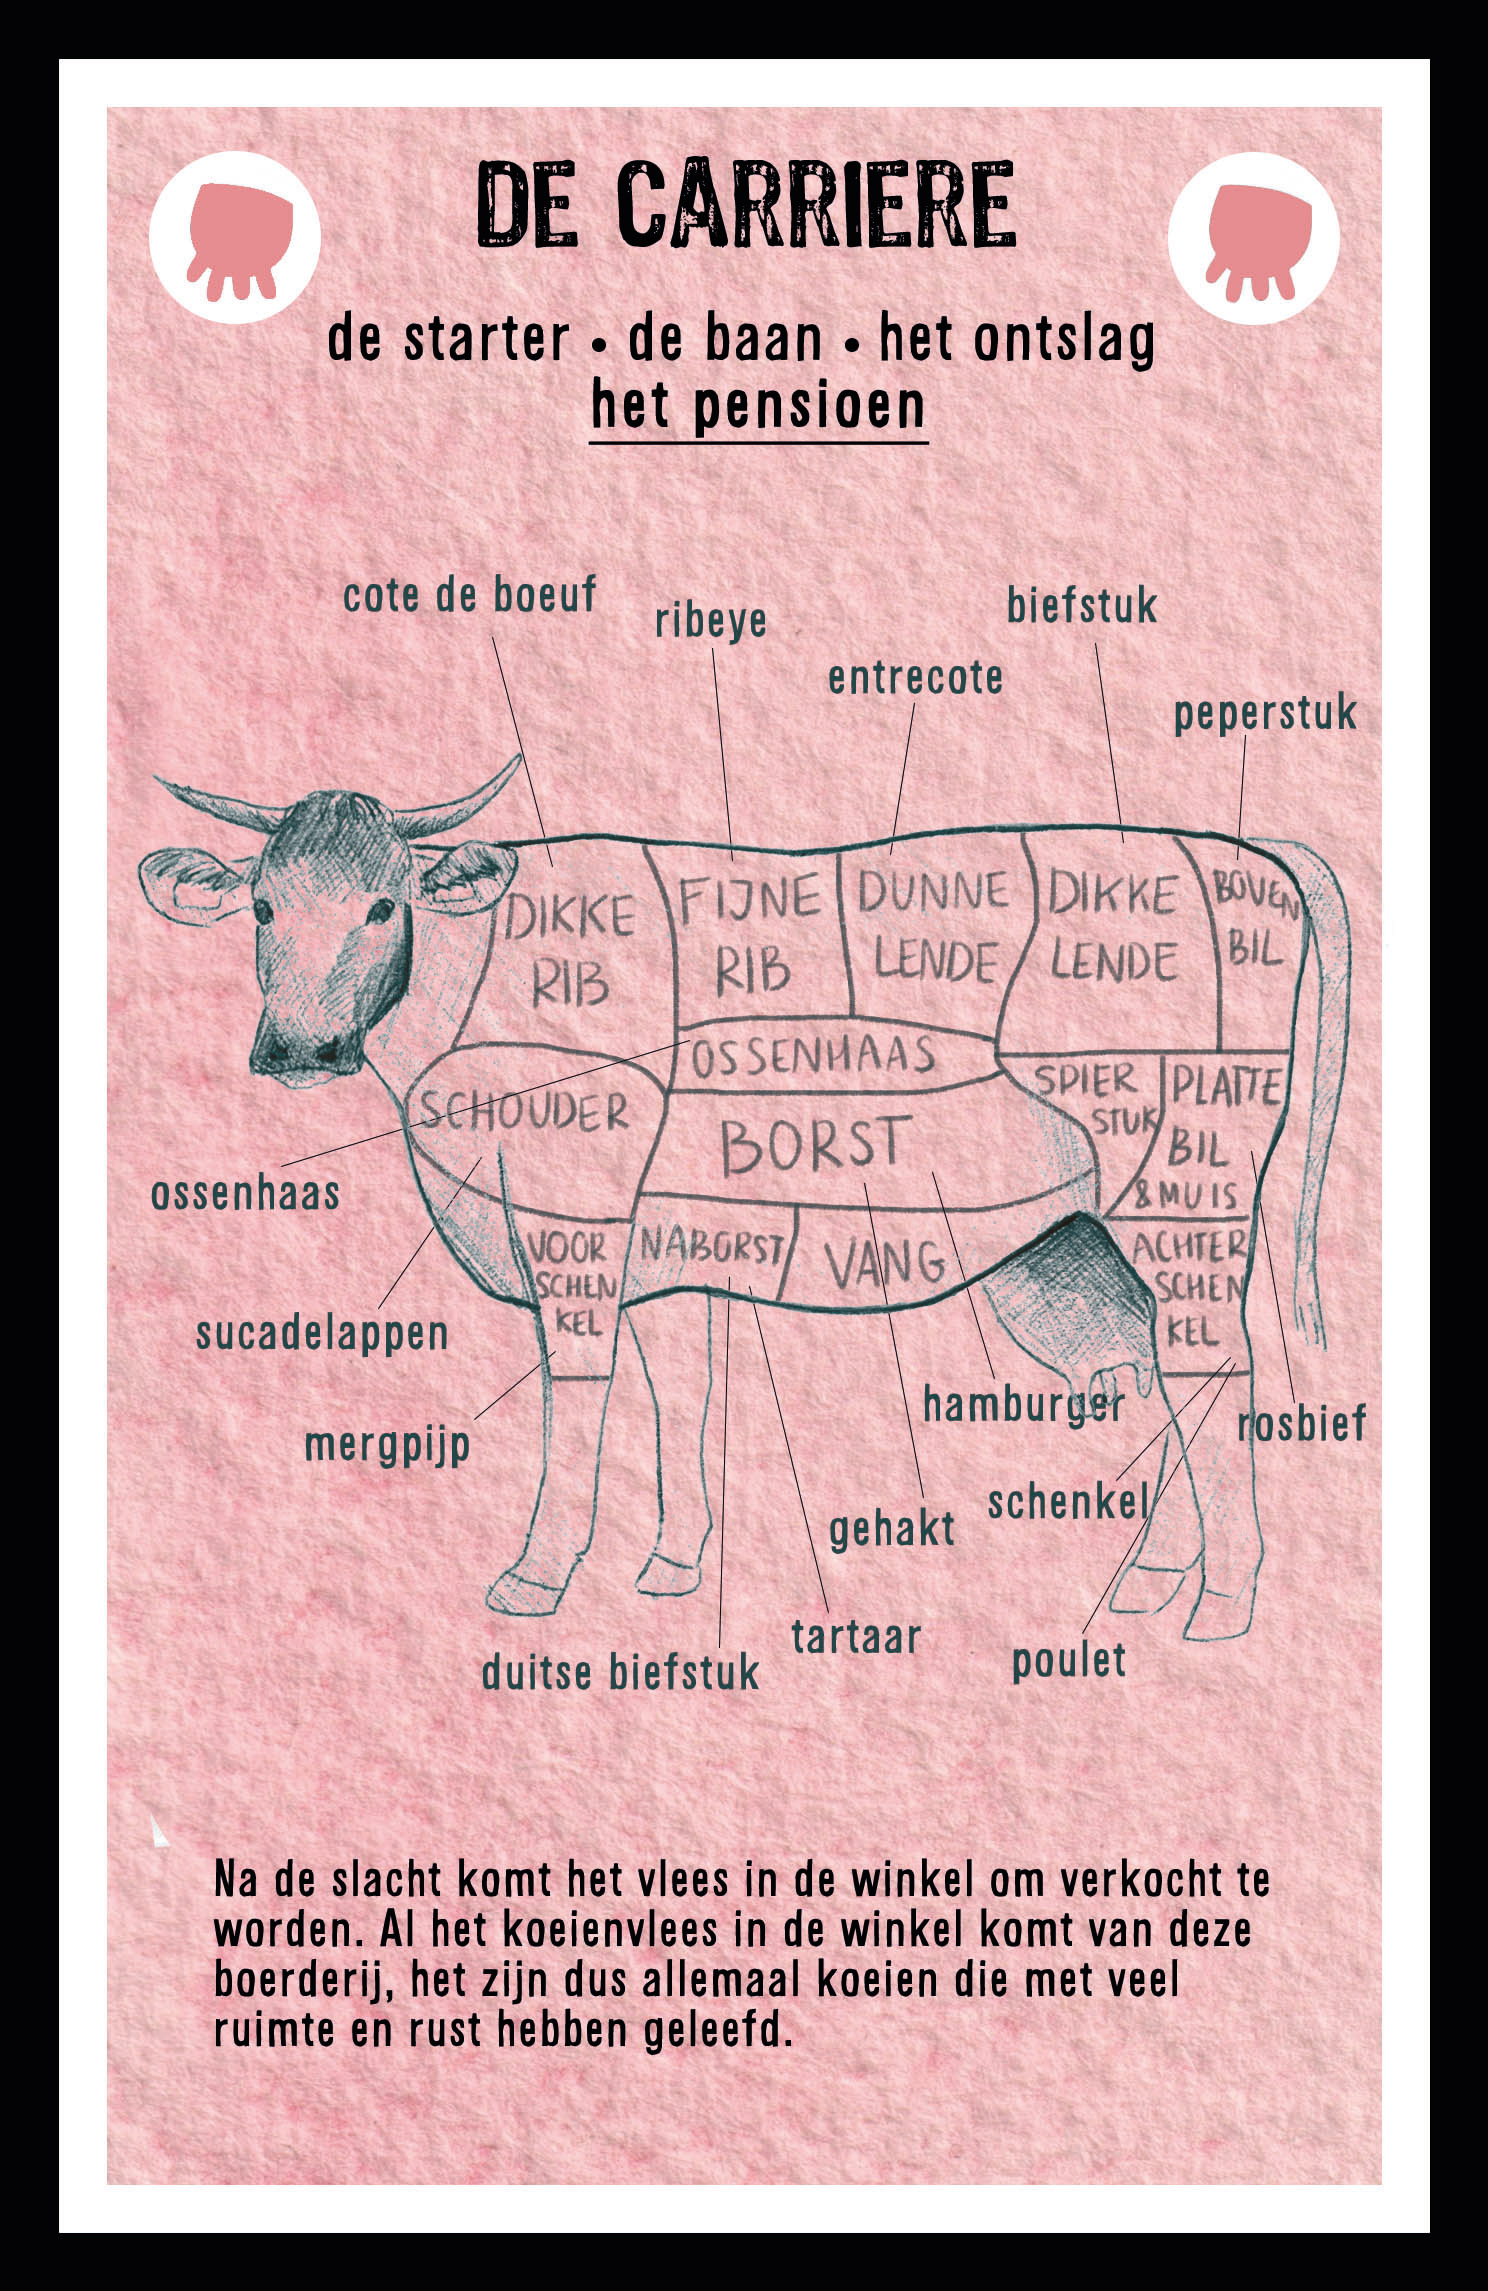 DE CARRIERE
de starter • de baan • het ontslag
het pensioen
cote de boeuf
ribeye
biefstuk
entrecote
peperstuk
DIKKE
RIB
FIJNE
RIB
DUNNE
LENDE
DIKKE
LENDE
BOVEN
BIL
OSSENHAAS
SCHOUDER
BORST
SPIER
STUK
PLATTE
BIL
& MUIS
ossenhaas
VOOR
SCHEN
KEL
NABORST
VANG
ACHTER
SCHEN
KEL
sucadelappen
mergpijp
hamburger
rosbief
gehakt
schenkel
tartaar
duitse biefstuk
poulet
Na de slacht komt het vlees in de winkel om verkocht te
worden. Al het koeienvlees in de winkel komt van deze
boerderij, het zijn dus allemaal koeien die met veel
ruimte en rust hebben geleefd.